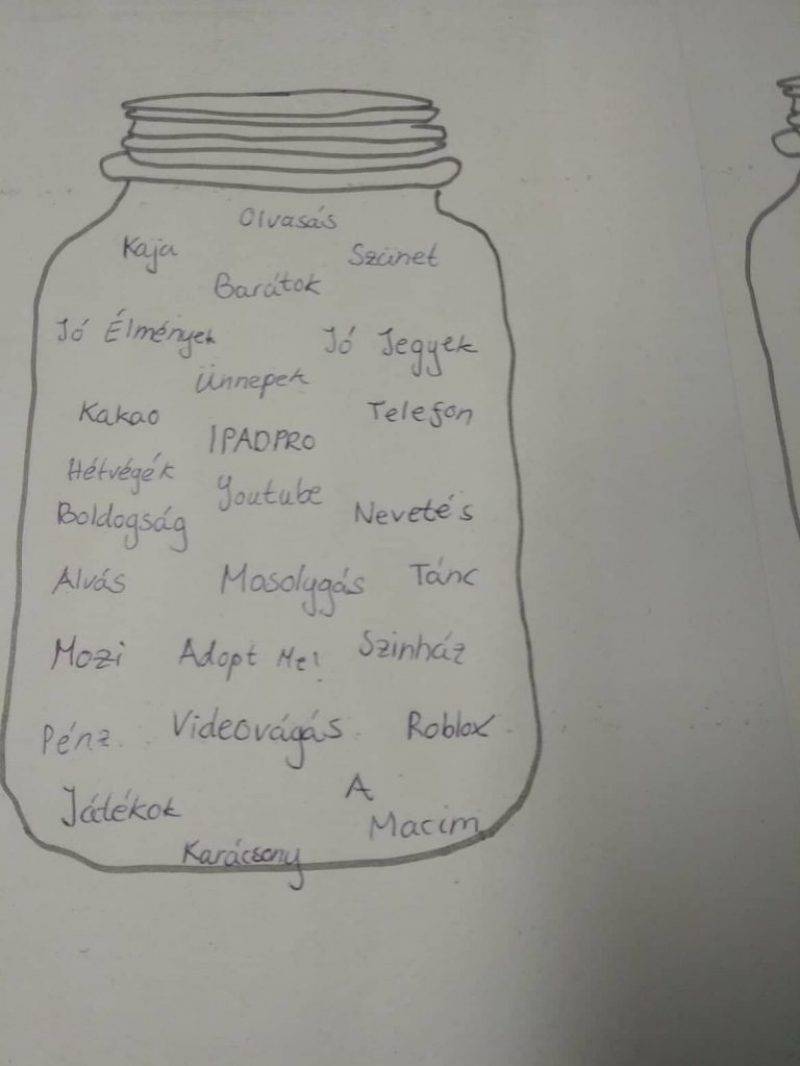 Olvasás
Kaja
Szünet
Barátok
Jó Élmények
Jó Jegyek
Ünnepek
Kakao
Telefon
IPADPRO
Hétvégék
Youtube
Boldogság
Nevetés
Alvás
Mosolygás
Tánc
Mozi
Adopt Me!
Szinház
Pénz
Videovágás
Roblox
Játékok
A
Macim
Karácsony